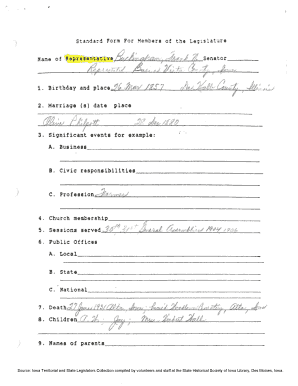 Standard Form For Members of the Legislature
Name of Representative Buckingham, Frank N. Senator
Represented Buena Vista County, Iowa
1. Birthday and place 26 Mar 1857 County, Illinois
2. Marriage (s) date place
20 Dec 1880
3. Significant events for example:
A. Business
B. Civic responsibilities
C. Profession Farmer
4. Church membership
5. Sessions served General Assemblies
6. Public Offices
A. Local
B. State
C. National
7. Death 27 June 1931 Alta, Iowa; Cemetery, Alta, Iowa
8. Children Jay; Mrs.
9. Names of parents
Source: Iowa Territorial and State Legislators Collection compiled by volunteers and staff at the State Historical Society of Iowa Library, Des Moines, Iowa.